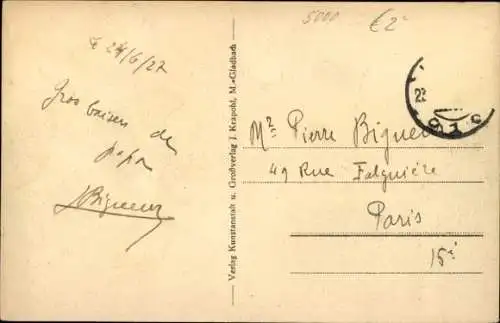 5000 € 2-
le 24/6/27
Gros baisers de
papa
Verlag Kunstanstalt u. Großverlag J. Krapohl, M.-Gladbach
Mr Pierre
49 Rue Falguière
Paris
15e